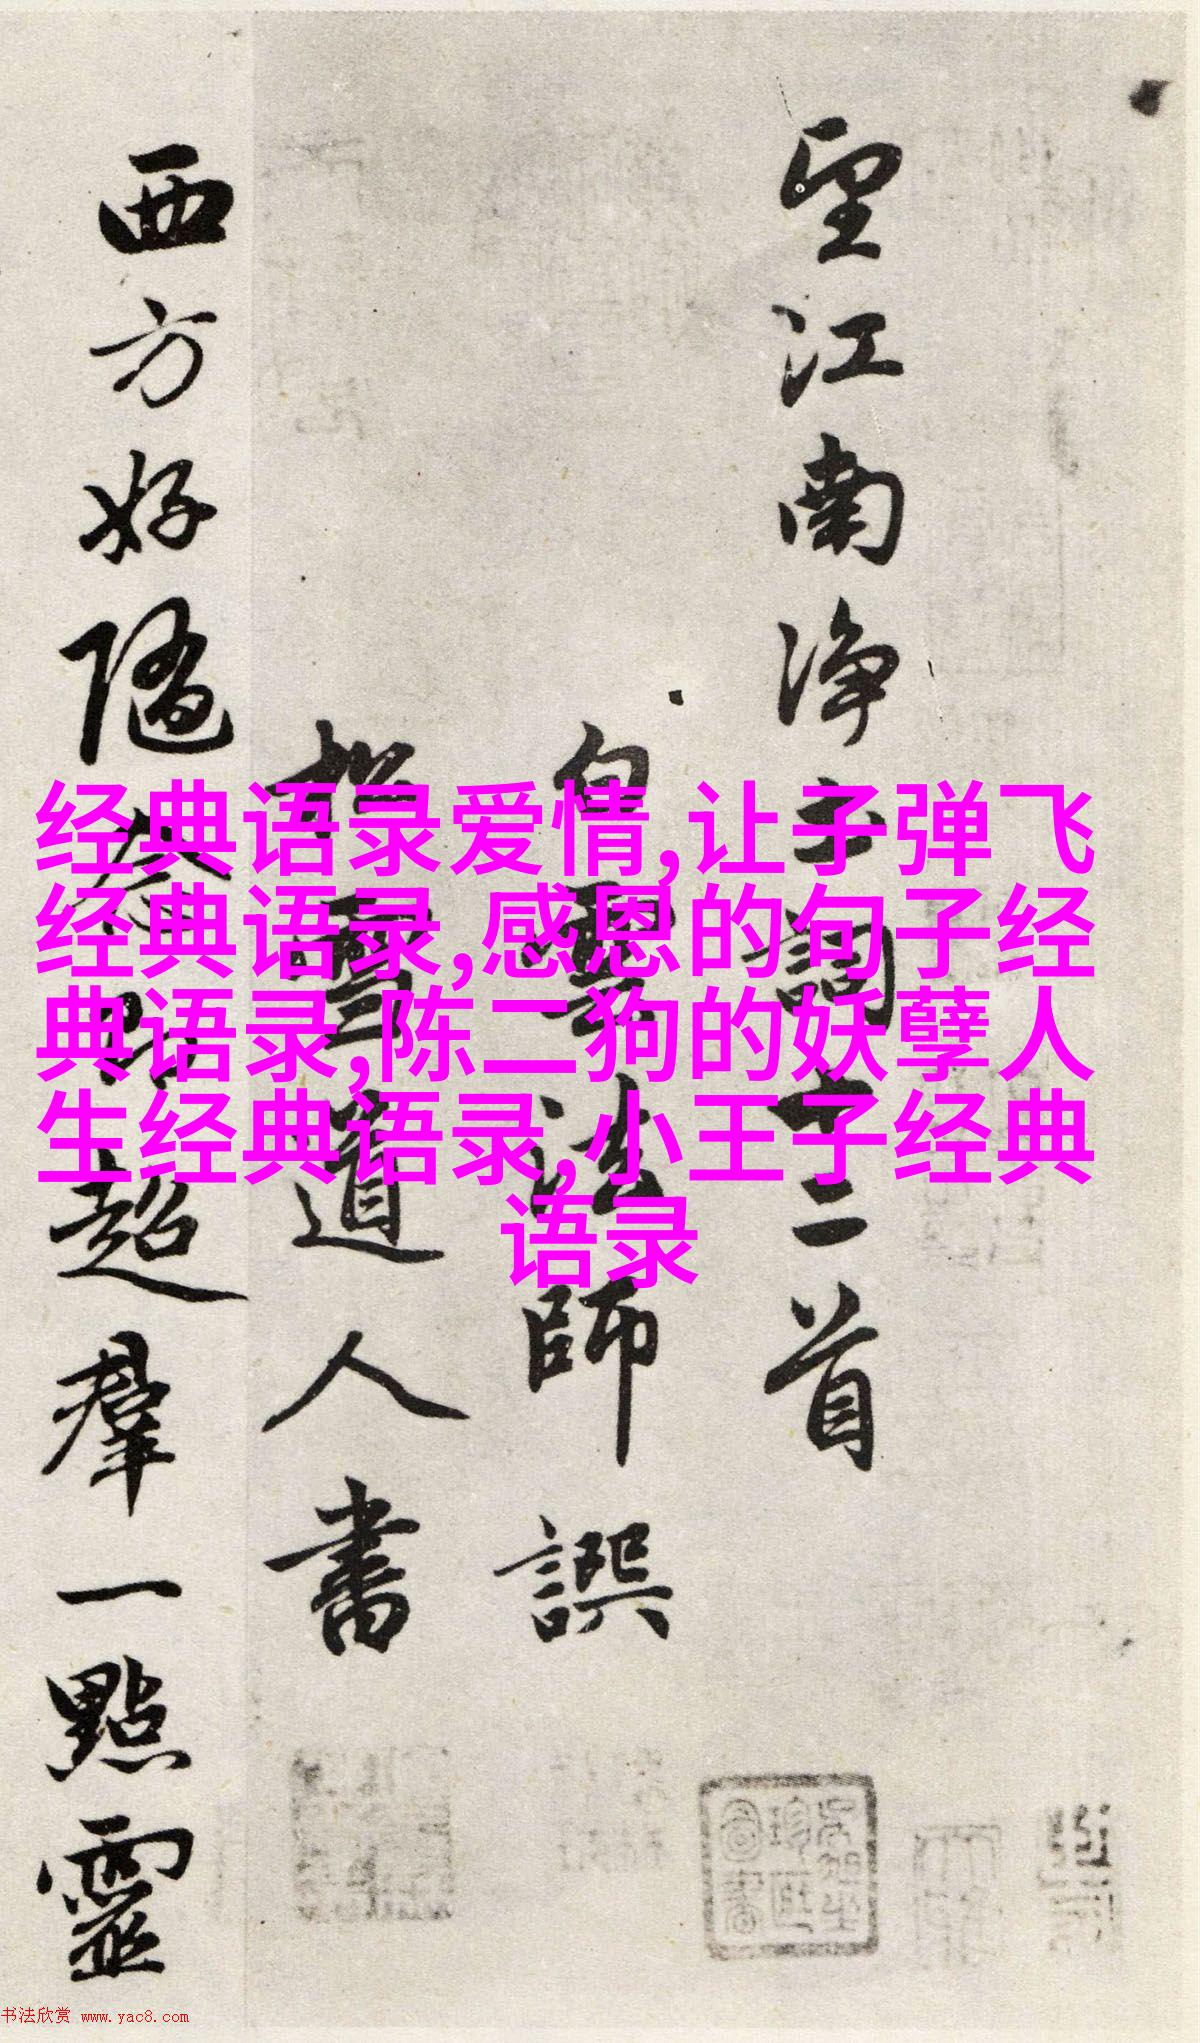 望江南淨土詞十二首
白雲法師譔
松雪道人書
西方好隨念即超羣一點靈
经典语录爱情,让子弹飞
经典语录,感恩的句子经
典语录,陈二狗的妖孽人
生经典语录,小王子经典
语录
书法欣赏 www.yac8.com